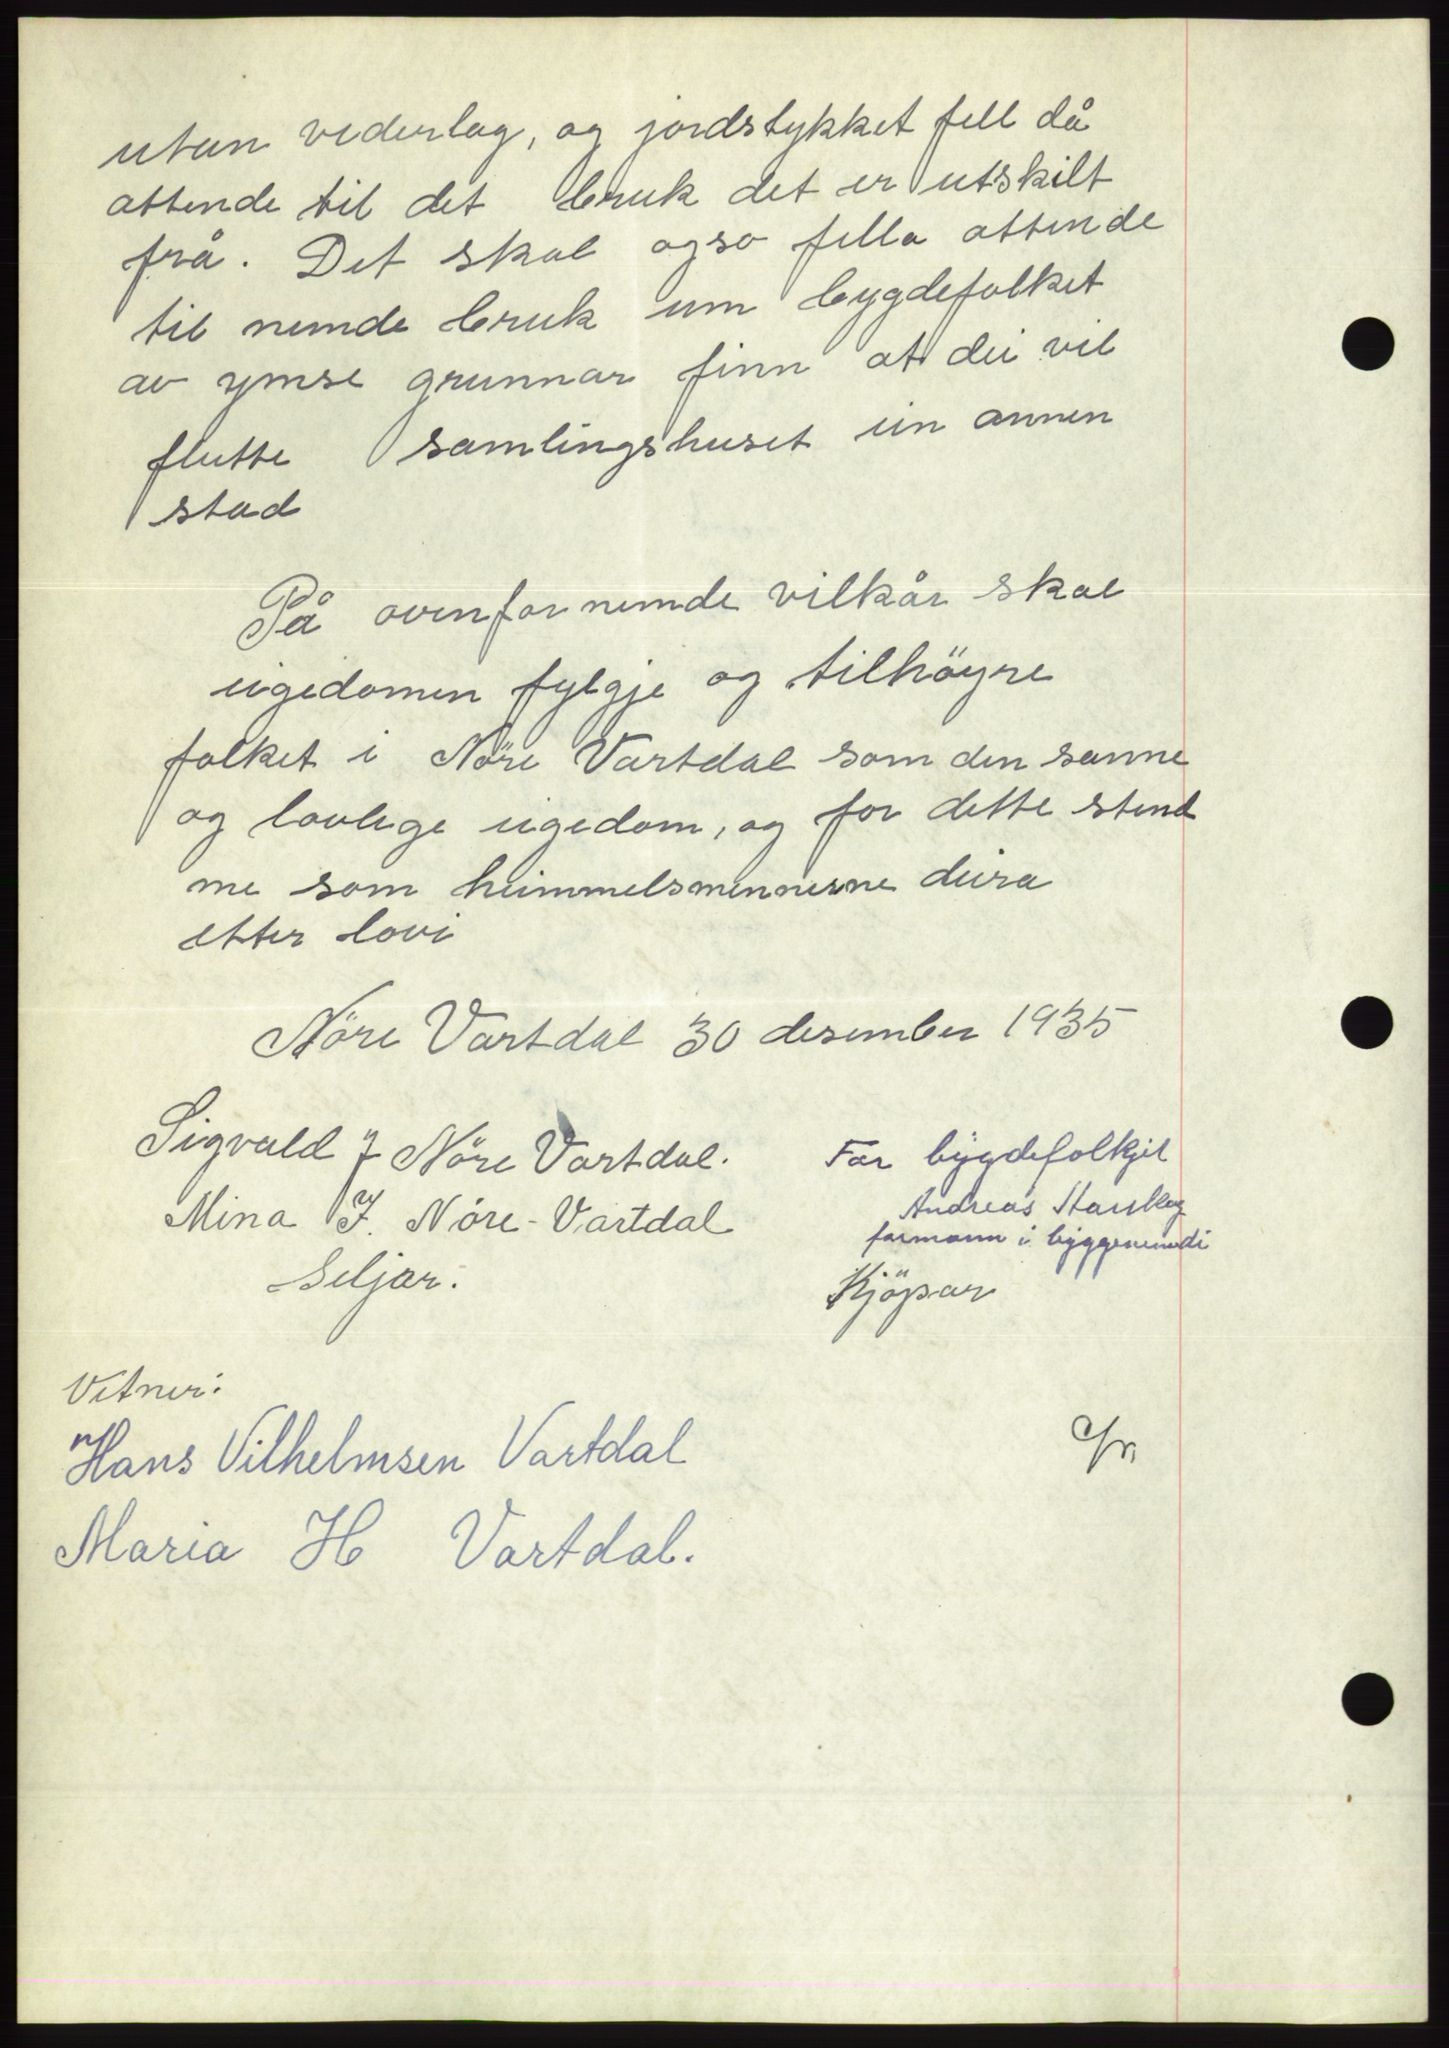 utan vederlag, og jordstykket fell då
attende til det bruk det er utskilt
frå. Det skal also fella attende
til nemde bruk um bygdefolket
av ymse grunnar finn at dei vil
flutte samlingshuset ein annen
stad
På ovenfornemde vilkår skal
eigedomen fylgje og tilhöyre
folket i Nöre Vartdal som den sanne
og lovlege eigedom, og for dette stend
me som heimmelsmennerne deira
etter lovi
Nöre Vartdal 30 desember 1935
Sigvald J Nöre Vartdal.
Mina J. Nöre-Vartdal
Seljar.
For bygdefolkjet
Andreas
formann i byggenemdi
Kjöpar
Vitner:
Hans Vilhelmsen Vartdal
Maria H Vartdal.